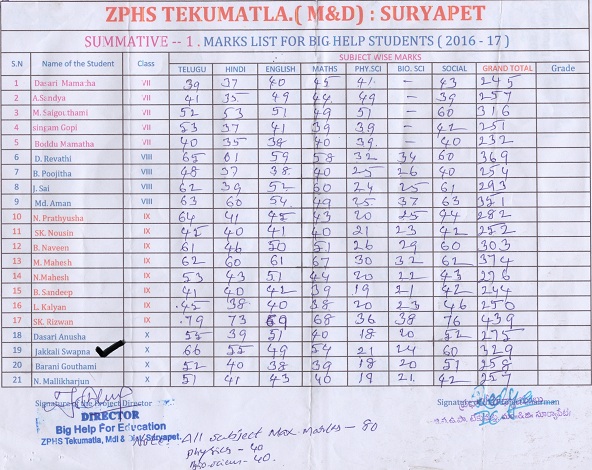 ZPHS TEKUMATLA.( M&D) : SURYAPET
SUMMATIVE -- 1 . MARKS LIST FOR BIG HELP STUDENTS ( 2016 - 17 )
S.N Name of the Student Class SUBJECT WISE MARKS
TELUGU HINDI ENGLISH MATHS PHY.SCI BIO. SCI SOCIAL GRAND TOTAL Grade
1 Dasari Mamatha VII 39 37 40 45 41 - 43 245
2 A.Sandya VII 41 35 49 44 49 - 39 257
3 M. Saigouthami VII 52 53 51 49 51 - 60 316
4 singam Gopi VII 53 37 41 39 39 - 42 251
5 Boddu Mamatha VII 40 35 38 40 39 - 40 232
6 D. Revathi VIII 65 61 59 58 32 34 60 369
7 B. Poojitha VIII 48 37 38 40 25 26 40 254
8 J. Sai VIII 62 39 52 60 24 25 61 293
9 Md. Aman VIII 63 60 54 49 25 37 63 351
10 N. Prathyusha IX 64 41 45 43 20 25 44 282
11 SK. Nousin IX 45 40 41 40 21 23 42 252
12 B. Naveen IX 61 46 50 51 26 29 60 303
13 M. Mahesh IX 62 60 61 67 30 32 62 374
14 N.Mahesh IX 53 43 51 44 20 22 43 276
15 B. Sandeep IX 41 40 42 39 19 21 42 244
16 L. Kalyan IX 45 38 40 38 20 23 46 250
17 SK. Rizwan IX 79 73 69 68 36 38 76 439
18 Dasari Anusha X 55 39 51 40 18 20 52 275
19 Jakkali Swapna X 66 55 49 54 21 24 60 329
20 Barani Gouthami X 52 40 38 39 18 20 51 258
21 N. Mallikharjun X 51 41 43 40 19 21 42 257
Signature of the Project Director
DIRECTOR
Big Help For Education
ZPHS Tekumatla, Mdl & Dist/Suryapet.
Note: All Subject Max. Marks - 80
Physics - 40
Bio. science - 40.